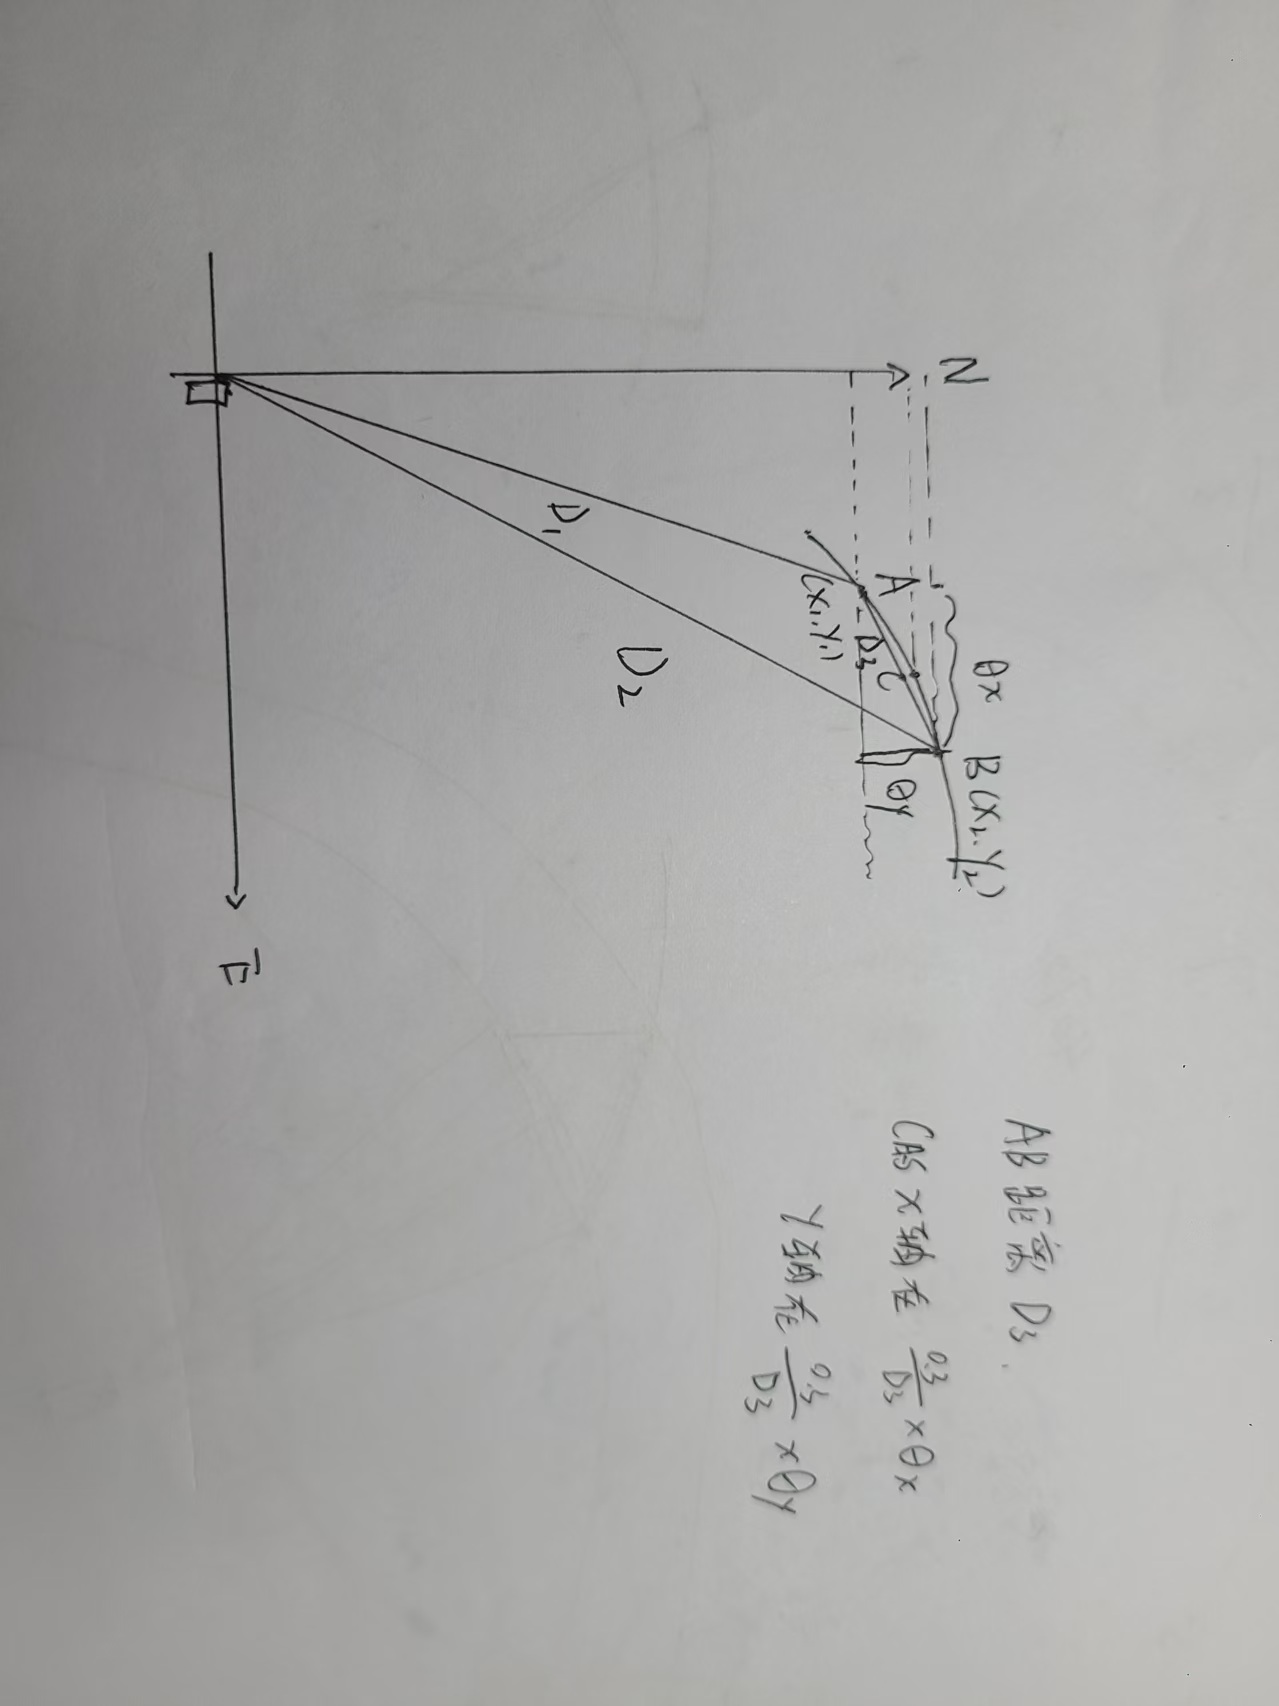 N
θx
B(X₂.Y₂)
A
C
θy
D₃
(X₁.Y₁)
D₂
D₁
E
AB距离 D₃.
CAS X轴在 0.3/D₃ × θx
Y轴在 0.3/D₃ × θy